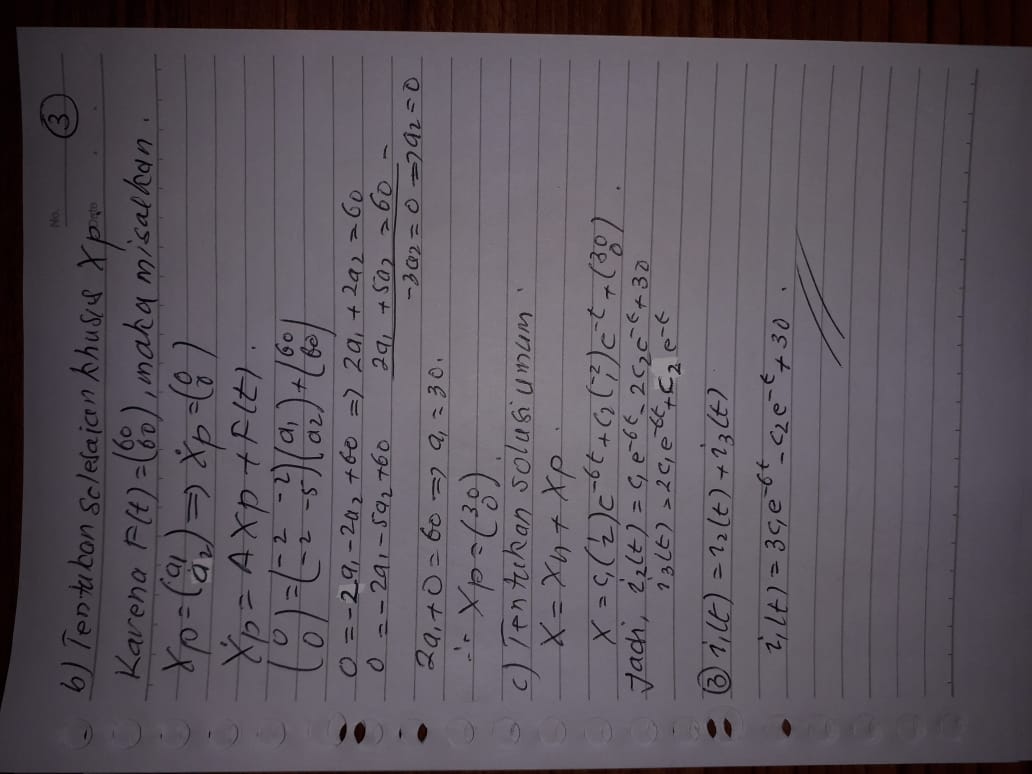 No.
③
Date
b) Tentukan selesaian khusus Xp.
Karena F(t) = (60 60), maka misalkan.
Xp = (a1 a2) => Ẋp = (0 0)
Ẋp = A Xp + F(t).
(0 0) = (-2 -2 -2 -5)(a1 a2) + (60 60)
0 = -2a1 - 2a2 + 60 => 2a1 + 2a2 = 60
0 = -2a1 - 5a2 + 60 2a1 + 5a2 = 60 -
-3a2 = 0 => a2 = 0
2a1 + 0 = 60 => a1 = 30.
∴ Xp = (30 0).
c) Tentukan solusi umum.
X = Xh + Xp.
X = c1(1 2)e^-6t + c2(-2 1)e^-t + (30 0).
Jadi, i2(t) = c1e^-6t - 2c2e^-t + 30
i3(t) = 2c1e^-6t + c2 e^-t
③ i1(t) = i2(t) + i3(t)
i1(t) = 3c1e^-6t - c2e^-t + 30.